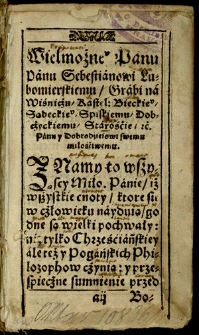 Wielmożne° Panu
Pánu Sebestianowi Lu-
bomierskiemu / Grábi ná
Wiśnicżu / Kaszt: Bieckie°
Sądeckie° Spiskiemu / Dob-
czyckiemu / Stárośćie / ꝛc.
Pánu y Dobrodzieiowi swemu
miłościwemu.
ZNamy to wszy-
scy Miło. Pánie / iż
wszystkie cnoty / ktore sie
w człowieku náyduią / go-
dne są wielki pochwały:
nie tylko Chrześćiáńskiey
ále też y Pogáńskich Phi-
lozophow czynią: y prze-
spieczne sumnienie przed
aij Bo-